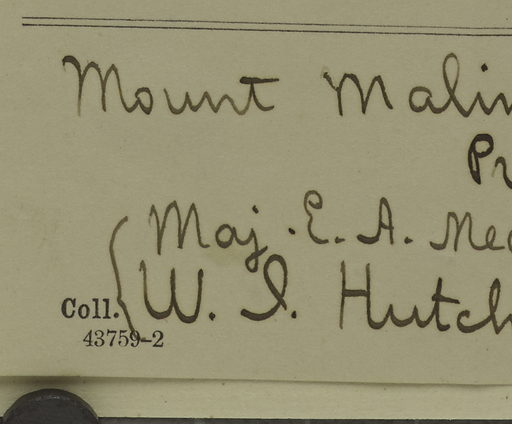 Mount Malin
Pr
Maj. E. A. Mea
W. I. Hutch
Coll.
43759-2